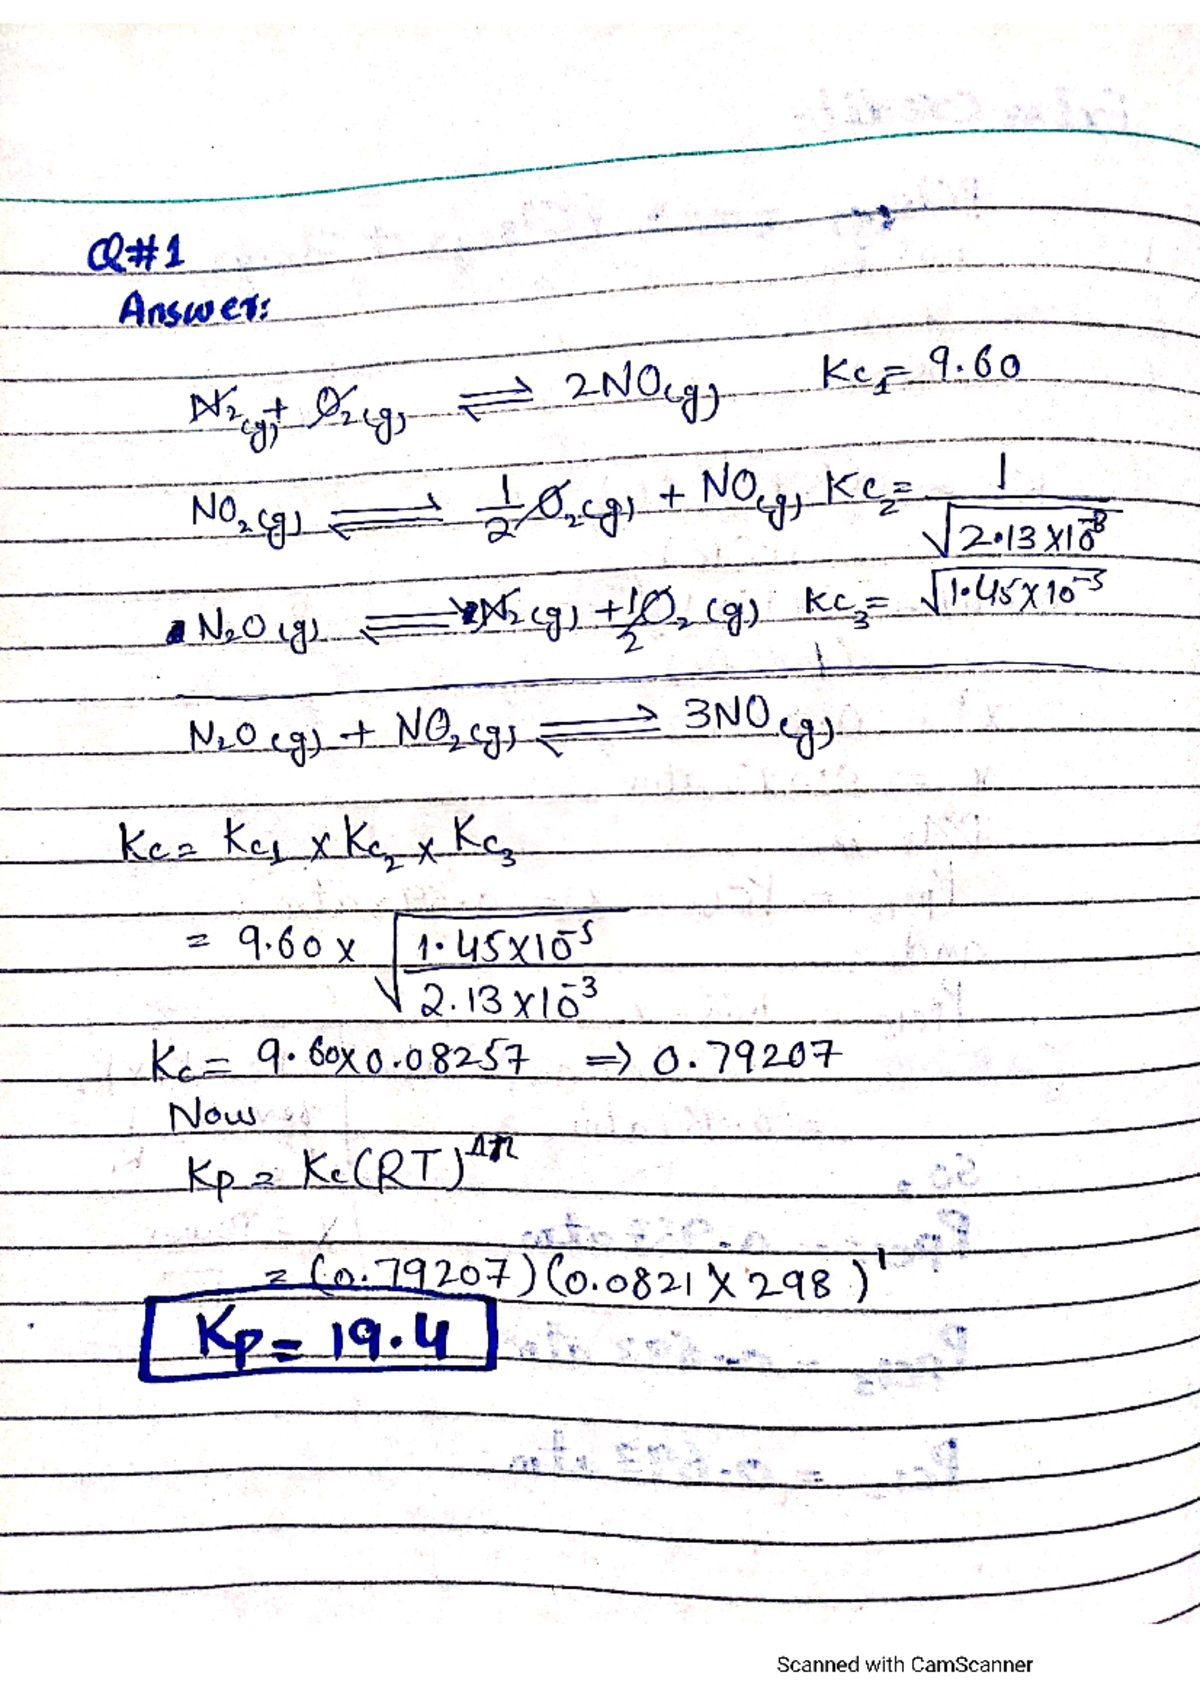 Q#1
Answer:
N₂(g) + O₂(g) ⇌ 2NO(g) Kc₁ = 9.60
NO₂(g) ⇌ 1/2 O₂(g) + NO(g) Kc₂ = 1/√(2.13 x 10⁻³)
N₂O(g) ⇌ N₂(g) + 1/2 O₂(g) Kc₃ = √(1.45 x 10⁻⁵)
N₂O(g) + NO₂(g) ⇌ 3NO(g)
Kc = Kc₁ x Kc₂ x Kc₃
= 9.60 x √(1.45x10⁻⁵ / 2.13x10⁻³)
Kc = 9.60x0.08257 => 0.79207
Now
Kp = Kc(RT)^Δn
= (0.79207)(0.0821 x 298)¹
Kp = 19.4
Scanned with CamScanner